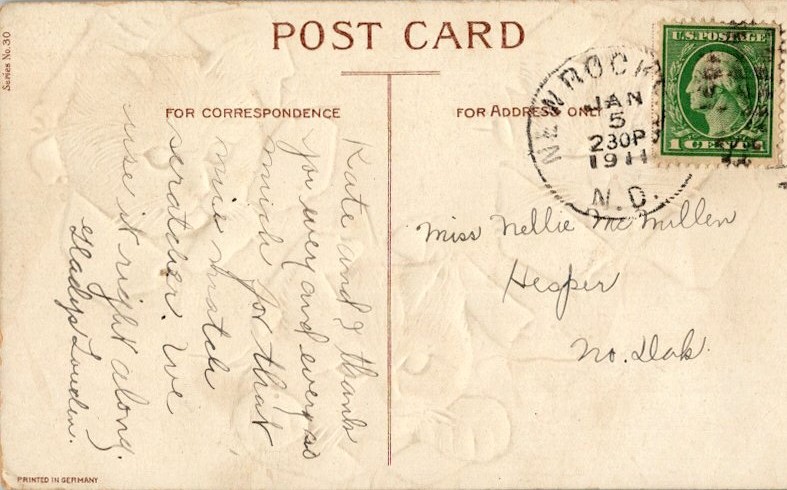 Series No. 30
POST CARD
FOR CORRESPONDENCE
FOR ADDRESS ONLY
NEW ROCK
JAN
5
230P
1911
N.D.
U.S. POSTAGE
1 CENT
Miss Nellie McMillen
Hesper
No. Dak.
Kate and I thank
you very and every so
much for that
nice match
scratcher. We
use it right along.
Gladys Louden.
PRINTED IN GERMANY